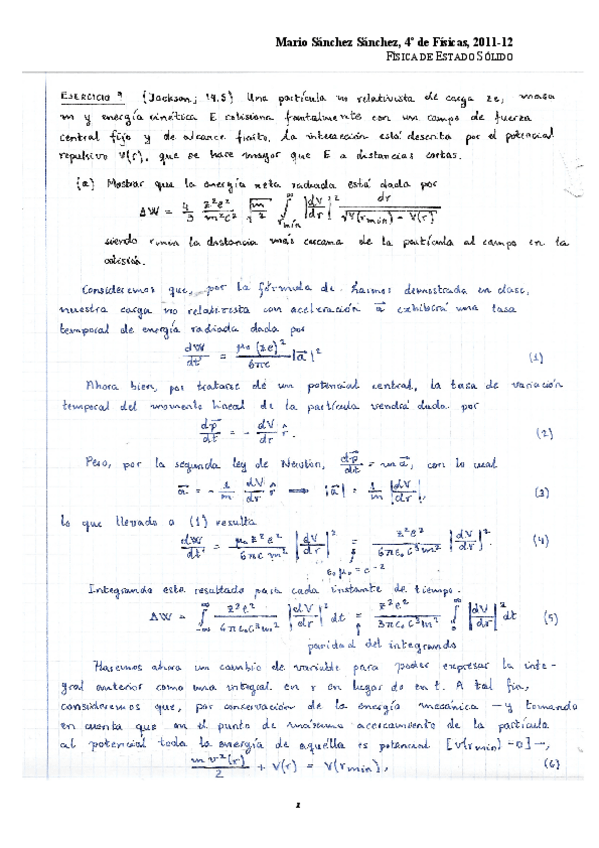 Mario Sánchez Sánchez, 4º de Físicas, 2011-12
FÍSICA DE ESTADO SÓLIDO
EJERCICIO 9 (Jackson; 14.5) Una partícula no relativista de carga ze, masa
m y energía cinética E colisiona frontalmente con un campo de fuerza
central fijo y de alcance finito. La interacción está descrita por el potencial
repulsivo V(r), que se hace mayor que E a distancias cortas.
(a) Mostrar que la energía neta radiada está dada por
ΔW = 4/3 z²e²/m²c³ √(m/2) ∫_{rmin}^{∞} |dV/dr|² dr/√(V(rmin) - V(r))
siendo rmin la distancia más cercana de la partícula al campo en la
colisión.
Consideremos que, por la fórmula de Larmor demostrada en clase,
nuestra carga no relativista con aceleración a⃗ exhibirá una tasa
temporal de energía radiada dada por
dW/dt = μ₀(ze)²/6πc |a⃗|² (1)
Ahora bien, por tratarse de un potencial central, la tasa de variación
temporal del momento lineal de la partícula vendrá dada por
dp⃗/dt = - dV/dr r̂. (2)
Pero, por la segunda ley de Newton, dp⃗/dt = m a⃗, con lo cual
a⃗ = - 1/m dV/dr r̂ ⟹ |a⃗| = 1/m |dV/dr|, (3)
lo que llevado a (1) resulta
dW/dt = μ₀z²e²/6πcm² |dV/dr|² = z²e²/6πε₀c³m² |dV/dr|². (4)
ε₀μ₀ = c⁻²
Integrando este resultado para cada instante de tiempo.
ΔW = ∫_{-∞}^{∞} z²e²/6πε₀c³m² |dV/dr|² dt = z²e²/3πε₀c³m² ∫_{0}^{∞} |dV/dr|² dt (5)
paridad del integrando
Hacemos ahora un cambio de variable para poder expresar la inte-
gral anterior como una integral en r en lugar de en t. A tal fin,
consideremos que, por conservación de la energía mecánica — y tomando
en cuenta que en el punto de máximo acercamiento de la partícula
al potencial toda la energía de aquélla es potencial [v(rmin) = 0] —,
mv²(r)/2 + V(r) = V(rmin), (6)
1